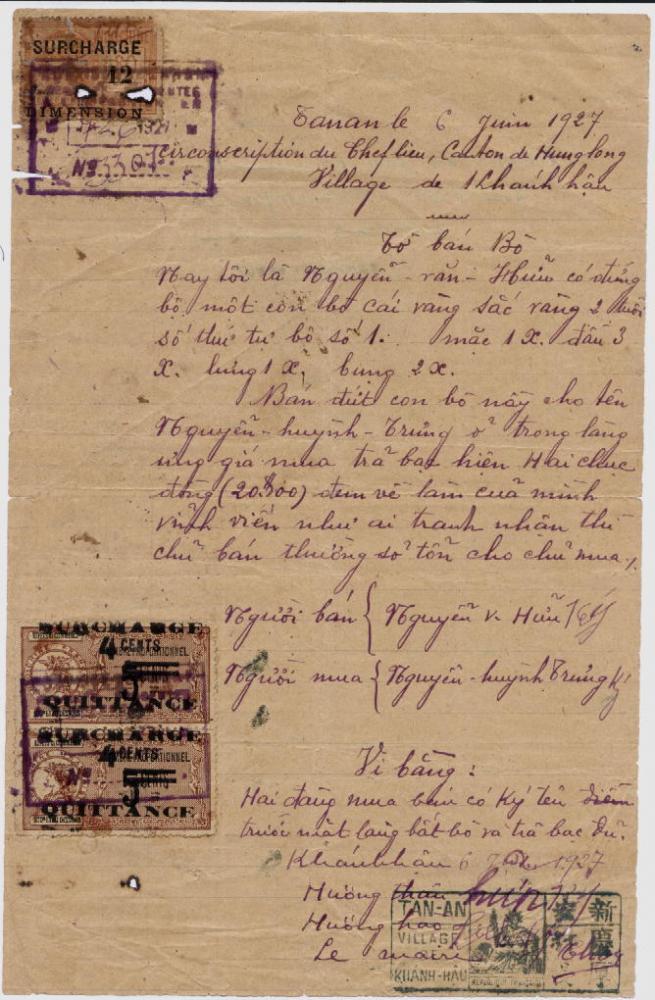 SURCHARGE
12
DIMENSION
Nº 3301
Tanan le 6 Juin 1927
Circonscription du Chef lieu, Canton de Hunglong
Village de Khanh hậu
Tờ bán Bò
Nay tôi là Nguyễn-văn-Hữu có đứng
bộ một con bò cái vàng sắc vàng 2 tuổi
số thứ tự bộ số 1. mặc 1 X. đầu 3
X. lưng 1 X, bụng 2 X.
Bán đứt con bò này cho tên
Nguyễn-huỳnh-Trưng ở trong làng
ưng giá mua trả bạc hiện Hai chục
đồng (20$00) đem về làm của mình
vĩnh viễn như ai tranh nhận thì
chủ bán thường sở tổn cho chủ mua
SURCHARGE
4 CENTS
5
QUITTANCE
SURCHARGE
4 CENTS
5
QUITTANCE
Nº
Người bán { Nguyễn V. Hữu Ký
Người mua { Nguyễn-huỳnh Trưng Ký
Vi bằng:
Hai đàng mua bán có Ký tên điềm
trước mặt làng bắt bò và trả bạc đủ.
Khánhhậu 6 1927
Hương thân
Hương hào
Le maire
TAN-AN
VILLAGE
KHÁNH-HẬU
新慶